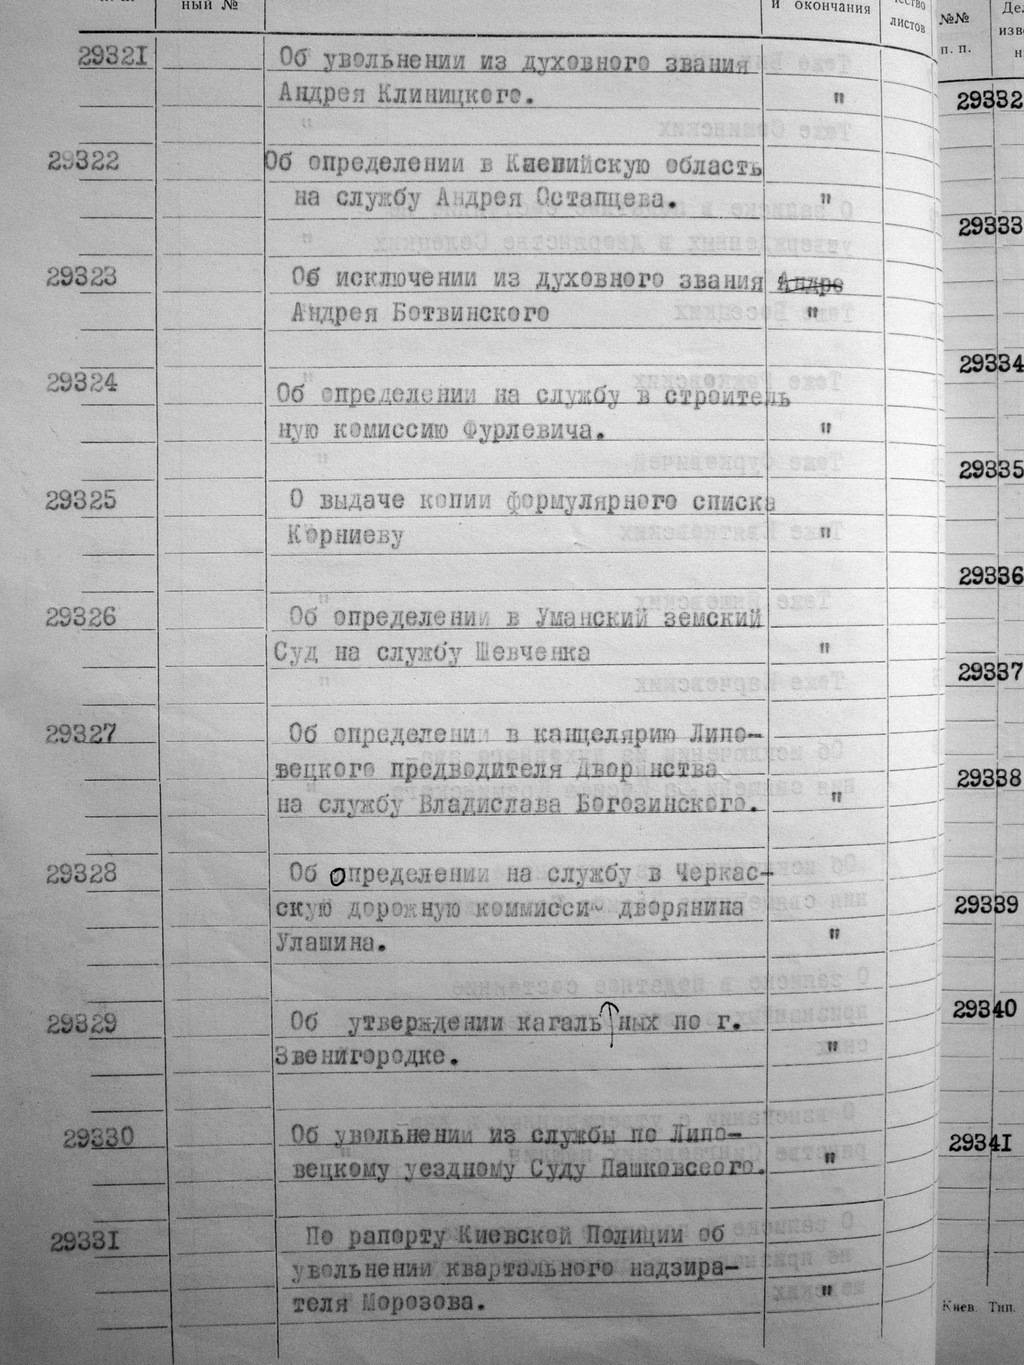 ный №
и окончания
листов
№№
п. п.
29321 Об увольнении из духовного звания
Андрея Клиницкого. "
29322 Об определении в Каспийскую область
на службу Андрея Остапцева. "
29323 Об исключении из духовного звания Андре
Андрея Ботвинского "
29324 Об определении на службу в строитель
ную комиссию Фурлевича. "
29325 О выдаче копии формулярного списка
Корниеву "
29326 Об определении в Уманский земский
Суд на службу Шевченка "
29327 Об определении в канцелярию Липо-
вецкого предводителя Двор нства
на службу Владислава Богозинского. "
29328 Об определении на службу в Черкас-
скую дорожную коммиси дворянина
Улашина. "
29329 Об утверждении кагаль ных по г.
Звенигородке. "
29330 Об увольнении из службы по Липо-
вецкому уездному Суду Пашковсеого. "
29331 По рапорту Киевской Полиции об
увольнении квартального надзира-
теля Морозова. "
29332
29333
29334
29335
29336
29337
29338
29339
29340
29341
Киев. Тип.